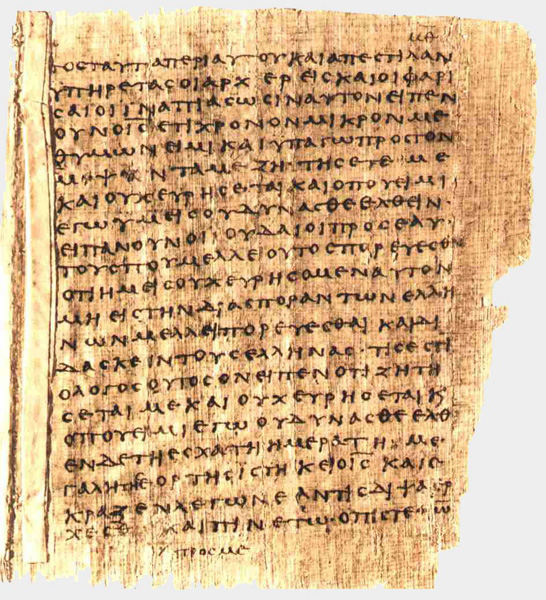 ΜΘ
ΤΟϹΤΑΥΤΑΠΕΡΙΑΥΤΟΥΚΑΙΑΠΕϹΤΙΛΑΝ
ΥΠΗΡΕΤΑϹΟΙΑΡΧΙΕΡΕΙϹΚΑΙΟΙΦΑΡΙ
ϹΑΙΟΙΙΝΑΠΙΑϹΩϹΙΝΑΥΤΟΝΕΙΠΕΝ
ΟΥΝΟΙ̅Ϲ̅ΕΤΙΧΡΟΝΟΝΜΙΚΡΟΝΜΕ
ΘΥΜΩΝΕΙΜΙΚΑΙΥΠΑΓΩΠΡΟϹΤΟΝ
ΠΕΜΨΑΝΤΑΜΕΖΗΤΗϹΕΤΕΜΕ
ΚΑΙΟΥΧΕΥΡΗϹΕΤΑΙΚΑΙΟΠΟΥΕΙΜΙ
ΕΓΩΥΜΕΙϹΟΥΔΥΝΑϹΘΕΕΛΘΕΙΝ·
ΕΙΠΑΝΟΥΝΟΙΙΟΥΔΑΙΟΙΠΡΟϹΕΑΥ
ΤΟΥϹΠΟΥΜΕΛΛΕΙΟΥΤΟϹΠΟΡΕΥΕϹΘΑΙ
ΟΤΙΗΜΕΙϹΟΥΧΕΥΡΗϹΟΜΕΝΑΥΤΟΝ
ΜΗΕΙϹΤΗΝΔΙΑϹΠΟΡΑΝΤΩΝΕΛΛΗ
ΝΩΝΜΕΛΛΕΙΠΟΡΕΥΕϹΘΑΙΚΑΙΔΙ
ΔΑϹΚΕΙΝΤΟΥϹΕΛΛΗΝΑϹ·ΤΙϹΕϹΤΙ
ΟΛΟΓΟϹΟΥΤΟϹΟΝΕΙΠΕΝΟΤΙΖΗΤΗ
ϹΕΤΑΙΜΕΚΑΙΟΥΧΕΥΡΗϹΕΤΑΙΚ
ΟΠΟΥΕΙΜΙΕΓΩΟΥΔΥΝΑϹΘΕΕΛΘ
ΕΝΔΕΤΗΕϹΧΑΤΗΗΜΕΡΑΤΗΜΕ
ΓΑΛΗΤΗϹΕΟΡΤΗϹΙϹΤΗΚΕΙΟΙ̅Ϲ̅ΚΑΙΕ
ΚΡΑΖΕΝΛΕΓΩΝΕΑΝΤΙϹΔΙΨΑΕΡ
ΧΕϹΘΩΚΑΙΠΙΝΕΤΩ·ΟΠΙϹΤΕΥΩ
ΠΡΟϹΜΕ